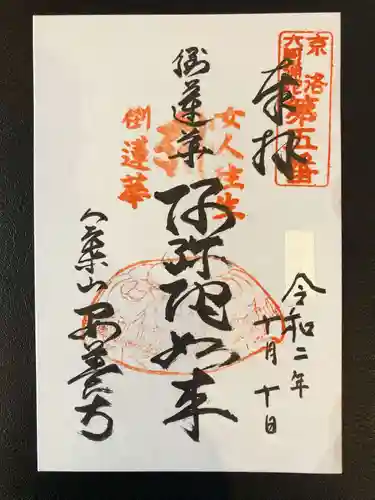 奉拝
京洛
六阿弥陀
第五番
令和二年
十月十日
女人往生
倒蓮華
倒蓮華
阿弥陀如来
八葉山
安養寺